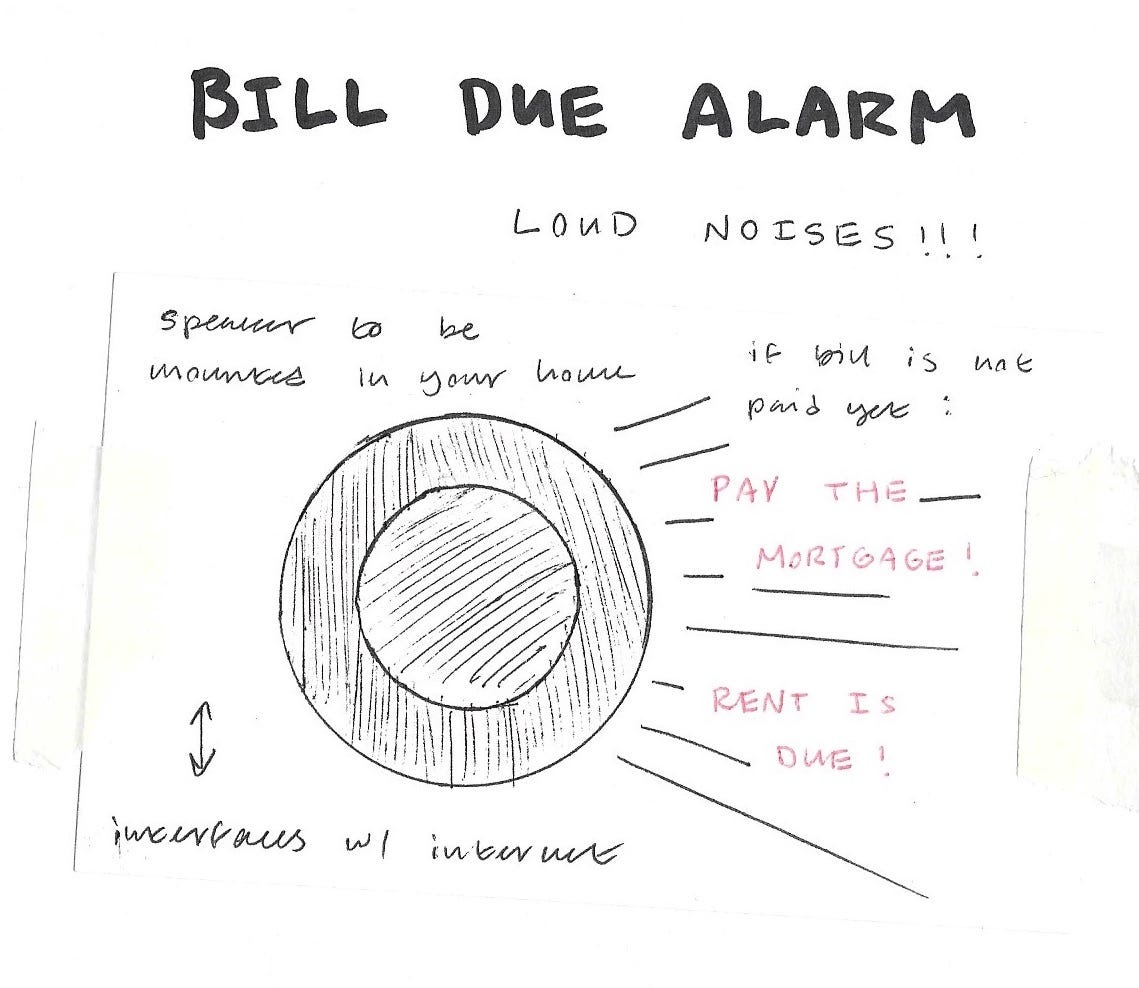 BILL DUE ALARM
LOUD NOISES!!!
speaker to be
mounted in your home
if bill is not
paid yet :
PAY THE
MORTGAGE!
RENT IS
DUE!
interfaces w/ internet